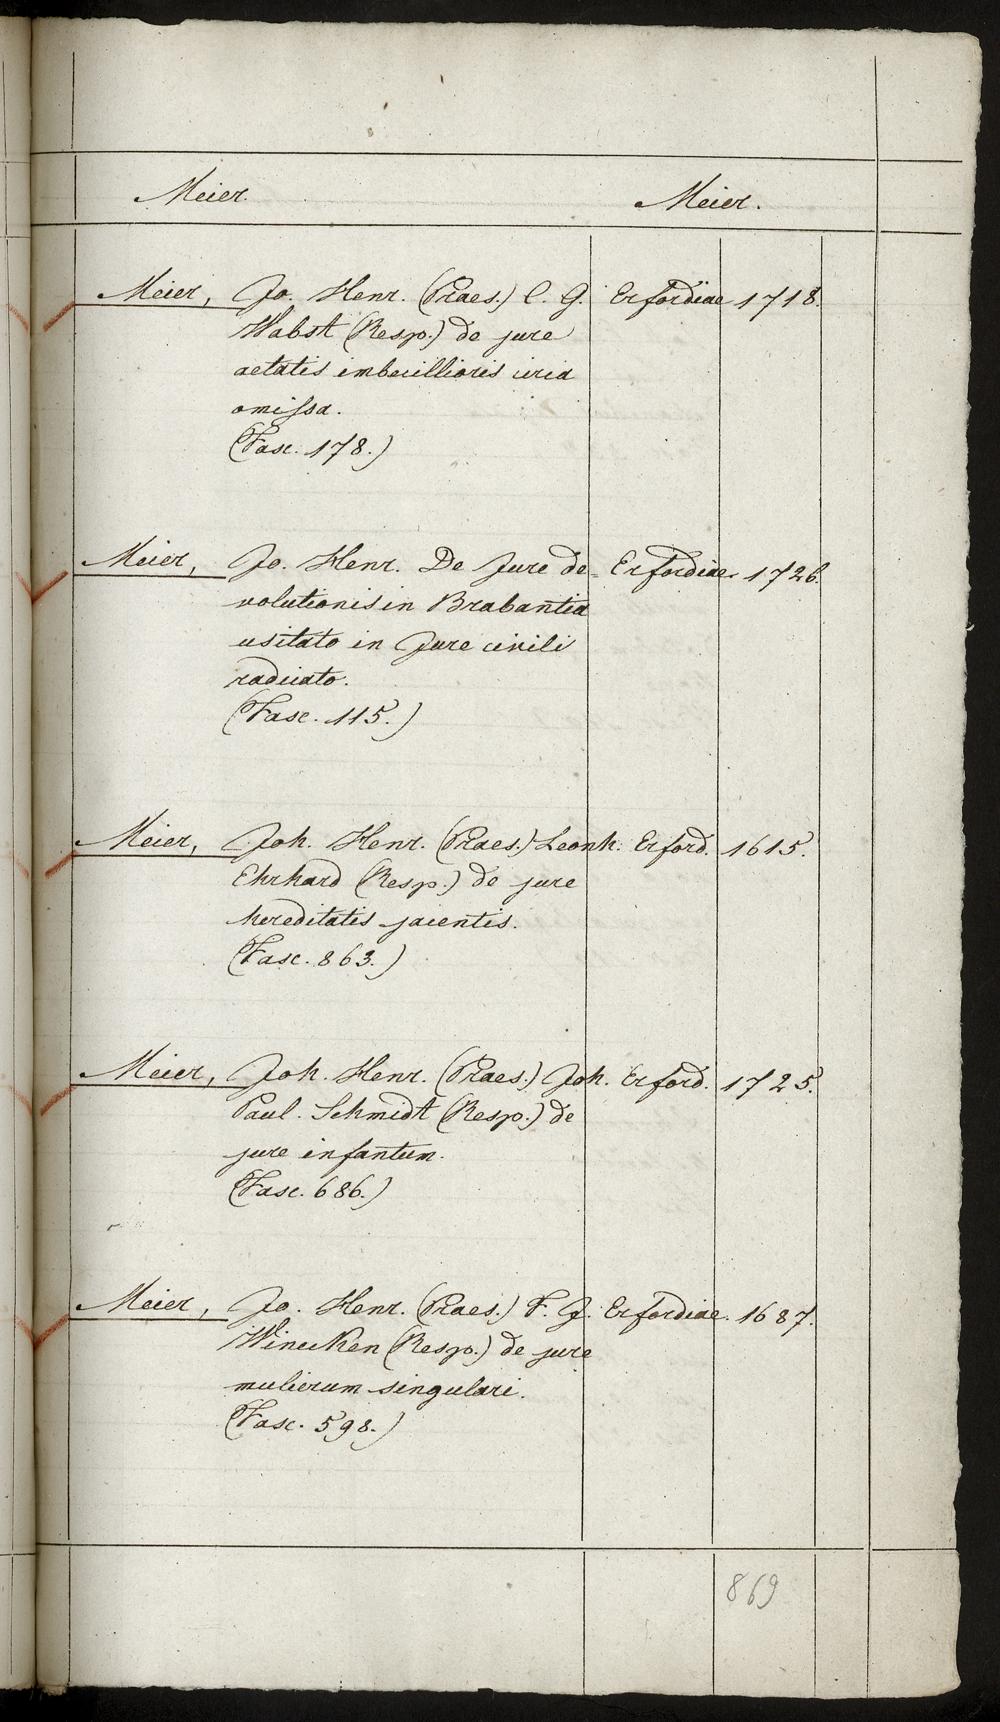 Meier. Meier.
Meier, Jo. Henr. (Praes.) C. G. Erfordiae 1718.
Wabst (Resp.) de jure
aetatis imbecillioris circa
omissa.
(Fasc. 178.)
Meier, Jo. Henr. De Jure de- Erfordiae. 1726.
volutionis in Brabantia
usitato in Jure civili
radicato.
(Fasc. 115.)
Meier, Joh. Henr. (Praes.) Leonh. Erford. 1615.
Ehrhard (Resp.) de jure
hereditatis jacentis.
(Fasc. 863.)
Meier, Joh. Henr. (Praes.) Joh. Erford. 1725.
Paul. Schmidt (Resp.) de
jure infantum.
(Fasc. 686.)
Meier, Jo. Henr. (Praes.) F. J. Erfordiae. 1687.
Winecken (Resp.) de jure
mulierum singulari.
(Fasc. 598.)
869